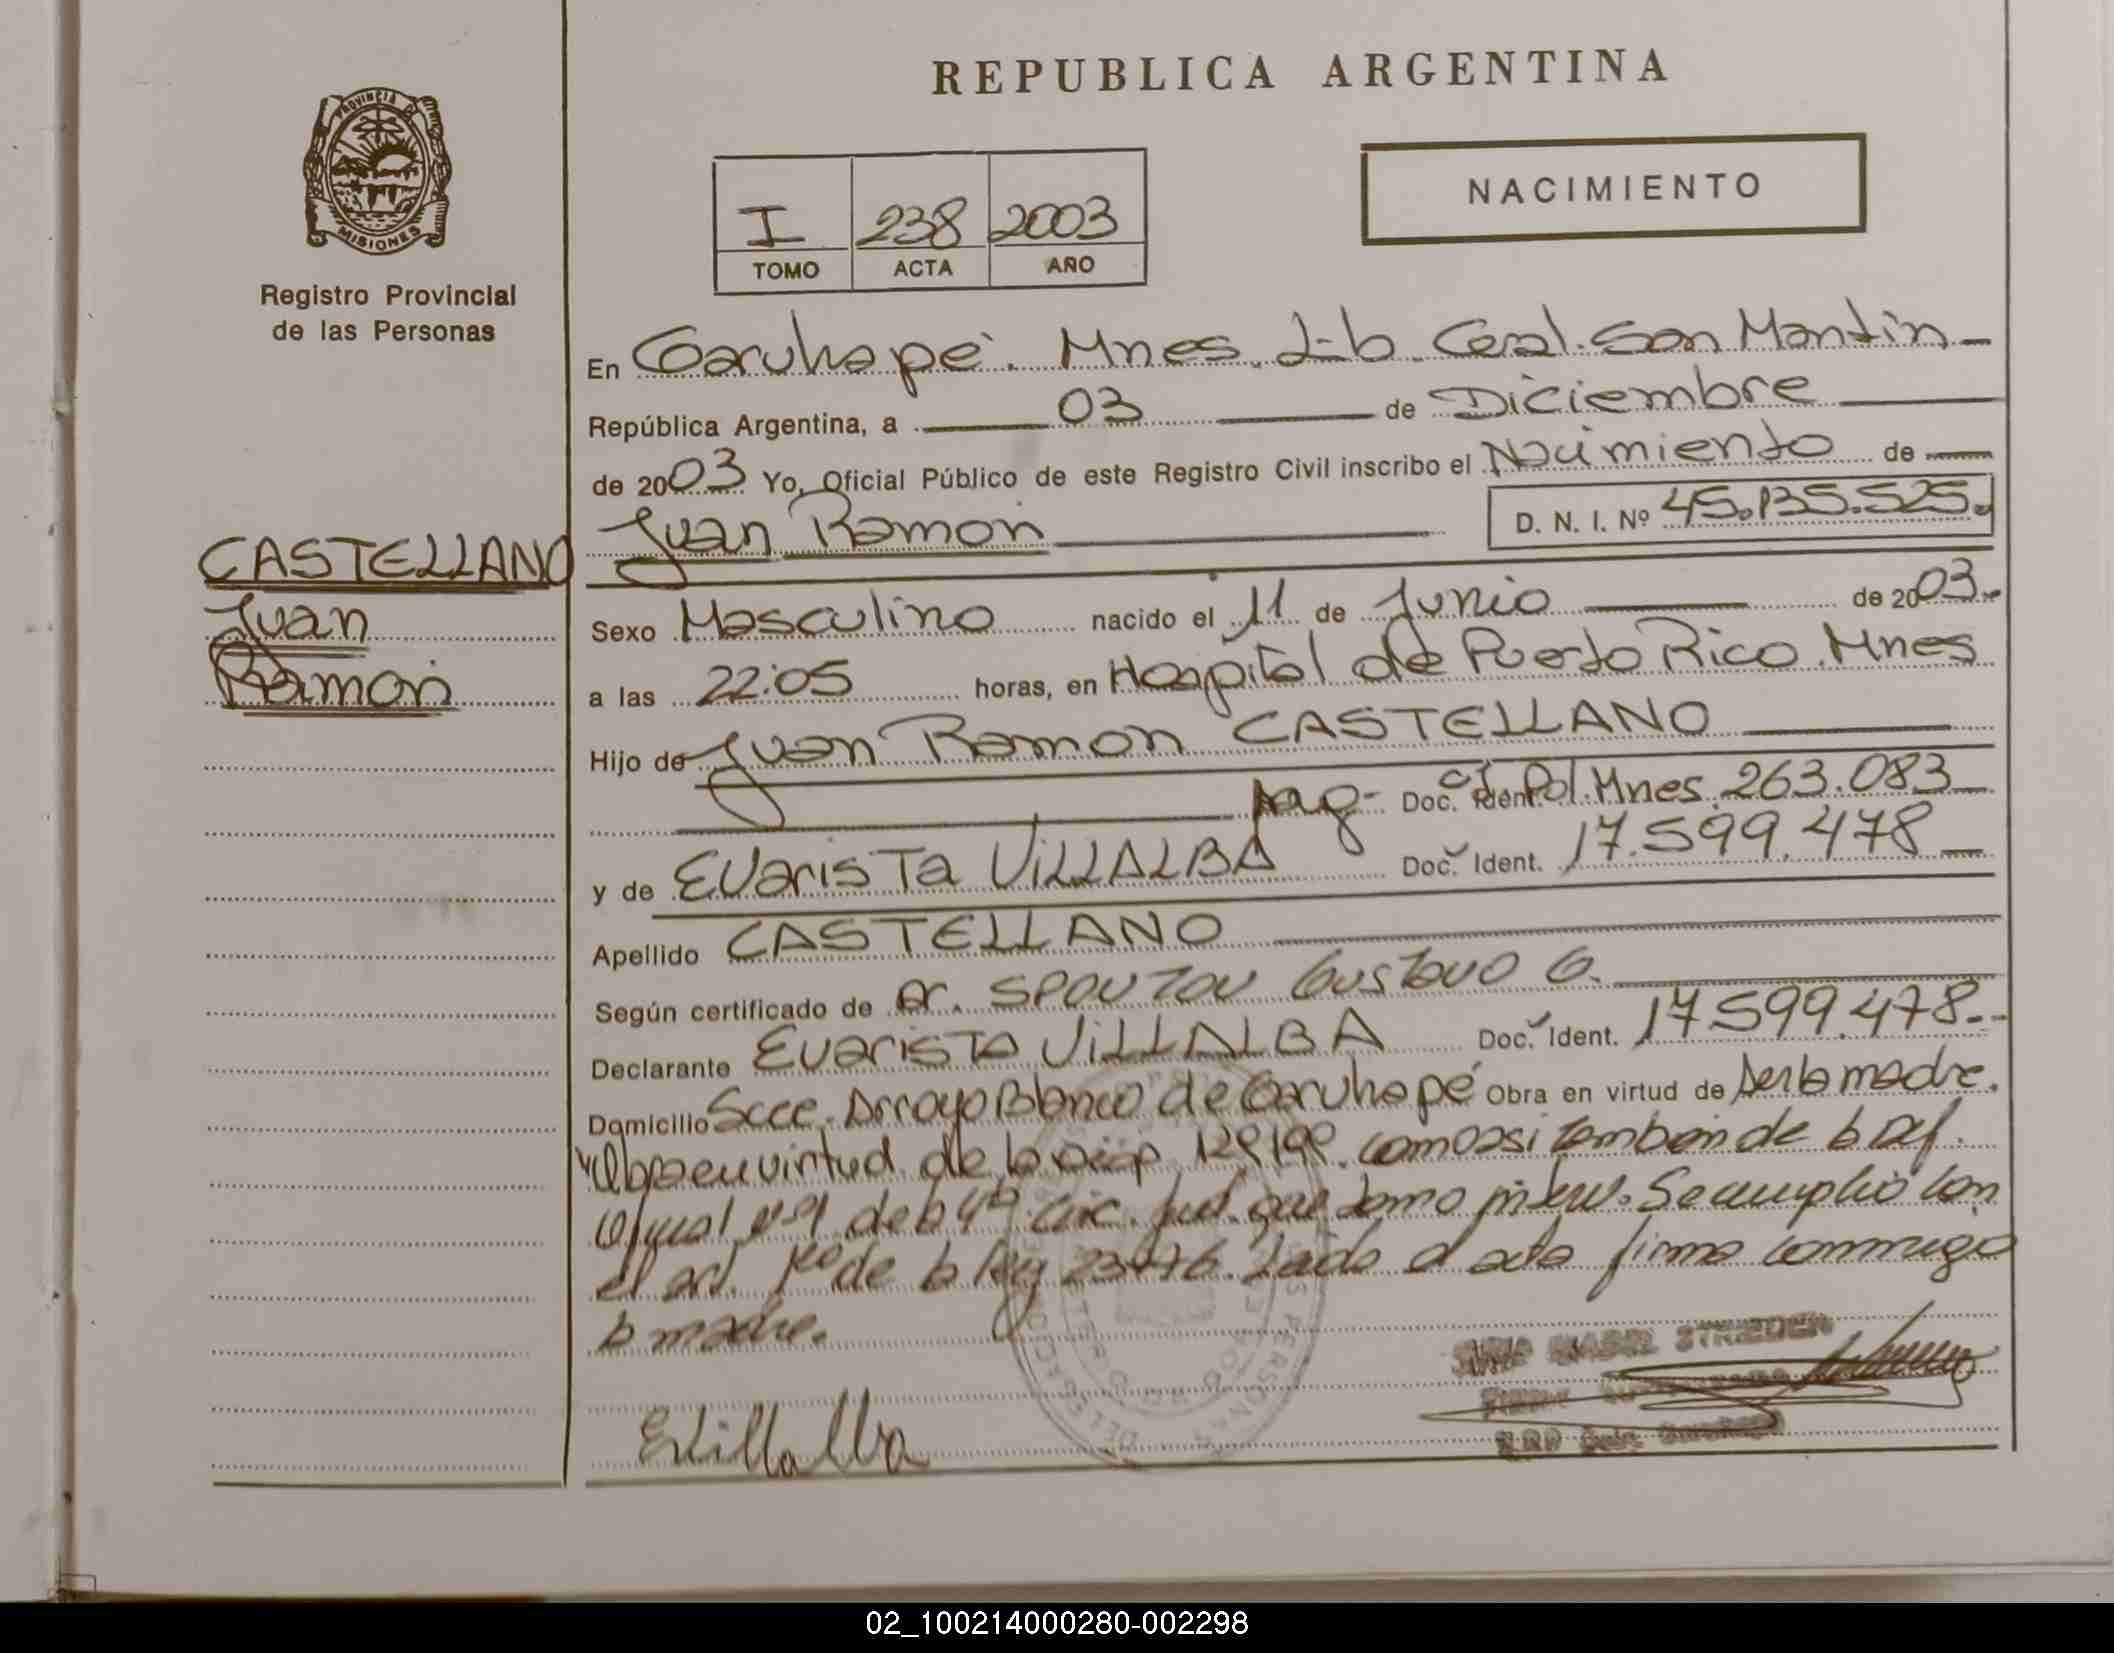 REPUBLICA ARGENTINA
PROVINCIA DE
MISIONES
Registro Provincial
de las Personas
I 238 2003
TOMO ACTA AÑO
NACIMIENTO
En Garuhapé. Mnes. Gral. San Martín
República Argentina, a 03 de Diciembre
de 2003 Yo, Oficial Público de este Registro Civil inscribo el Nacimiento de
Juan Ramon D. N. I. Nº 45.135.525.
CASTELLANO
Juan
Ramon
Sexo Masculino nacido el 11 de Junio de 2003.
a las 22:05 horas, en Hospital de Puerto Rico. Mnes
Hijo de Juan Ramon CASTELLANO
Arg- Doc. Ident. Pol. Mnes. 263.083
y de Evarista VILLALBA Doc. Ident. 17.599.478
Apellido CASTELLANO
Según certificado de Dr. Gustavo G.
Declarante Evarista VILLALBA Doc. Ident. 17.599.478.
Domicilio Secc. Arroyo Blanco de Garuhapé Obra en virtud de ser la madre.
Obra en virtud de la como asi tambien de la Def.
de la 4ta. Circ. Jud. que tomo interv. Se cumplió con
el art. 1ro de la ley Leida el acta firma conmigo
la madre.
EVillalba
STRIEDER
02_100214000280-002298